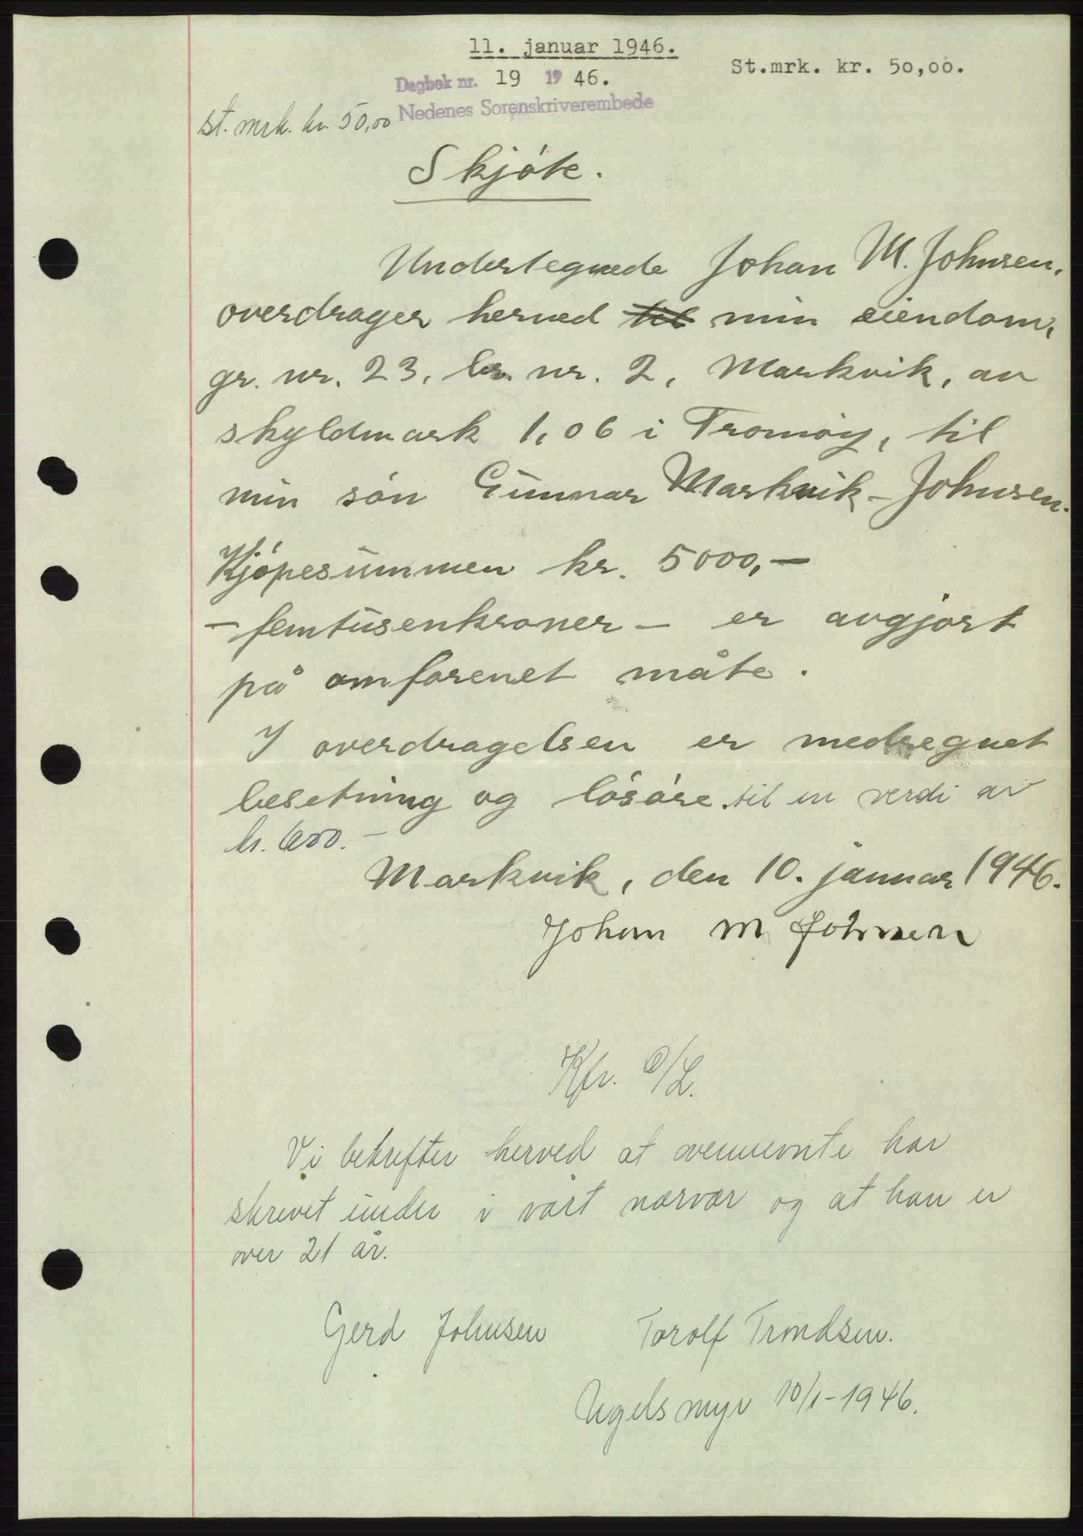 11. januar 1946.
St.mrk. kr. 50,00.
Dagbok nr. 19 1946.
Nedenes Sorenskriverembede
St. mrk. kr. 50,00
Skjóte.
Undertegnede Johan M. Johnsen,
overdrager herved til min eiendom,
gr. nr. 23, br. nr. 2, Markvik, av
skyldmark 1,06 i Tromøy, til
min són Gunnar Markvik-Johnsen.
Kjópesummen kr. 5000,-
- femtusenkroner - er avgjort
på omforenet måte.
I overdragelsen er medregnet
besetning og lósóre til en verdi av
kr. 600.-
Markvik, den 10. januar 1946.
Johan M Johnsen
Vi bekrefter herved at ovennevnte har
skrevet under i vårt nærvær og at han er
over 21 år.
Gerd Johnsen Torolf Trondsen.
10/1-1946.